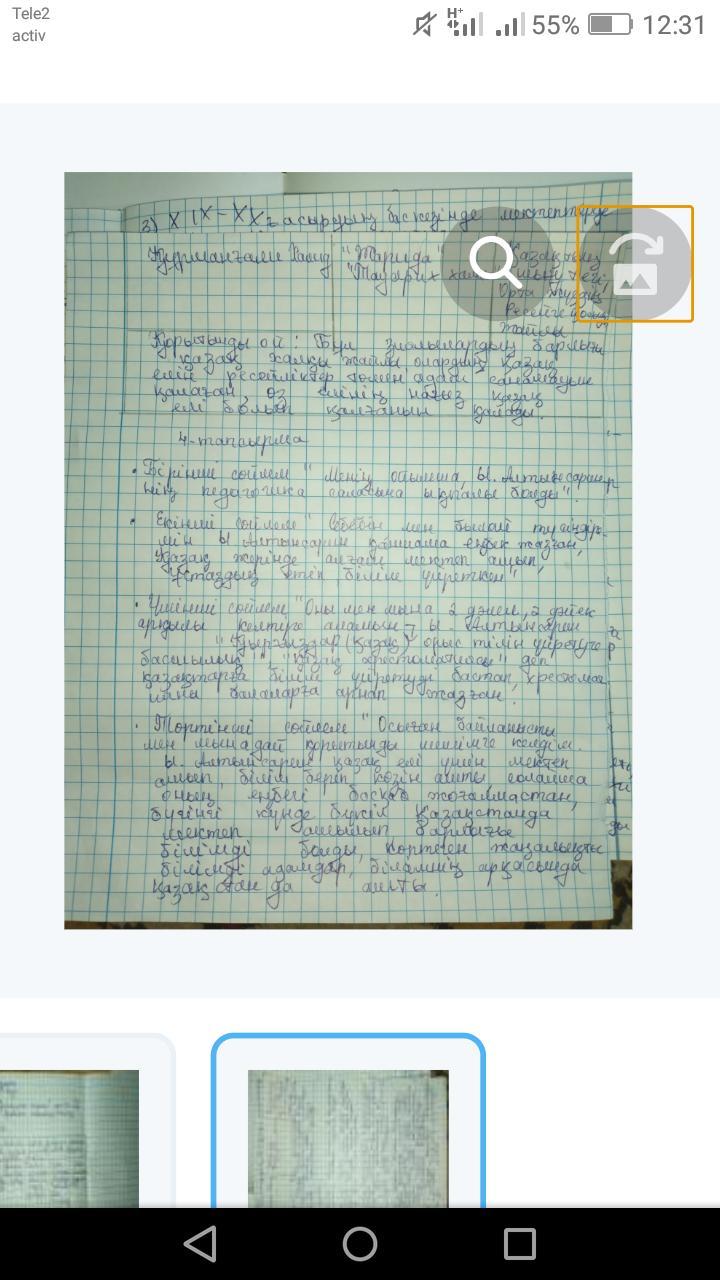 Tele2
activ
H+
55%
12:31
3) XIX-XX ғасырдың бас кезінде мектептерде
Құрманғали Халид "Тарида" Қазақтың
"Тауарих хам шығу тегі,
Орта жүздің
Ресейге
жайлы
Қорытынды ой: Бұл барлығы
қазақ халқы жайлы, олардың қазақ
елін ресейліктер төмен адам санамауын
қалаған, өз елінің нағыз қазақ
елі болып қалғанын қалады.
4-тапсырма
• Бірінші сөйлем "Менің ойымша, Ы. Алтынсарин-
нің педагогика саласына ықпалы болды".
• Екінші сөйлем "Себебін мен былай түсіндір-
мін Ы Алтынсарин қаншама еңбек жазған,
қазақ жерінде алғаш мектеп ашып,
ұстаздық етіп білім үйреткен"
• Үшінші сөйлем "Оны мен мына 2 дәлел, 2 дәйек
арқылы келтіре аламын - Ы. Алтынсарин
"Қырғыздар (қазақ) орыс тілін үйретуге
басшылық", "Қазақ хрестоматиясы" деп
қазақтарға білім үйретуді бастап, хрестома
тияны балаларға арнап жазған.
• Төртінші сөйлем "Осыған байланысты
мен мынадай қорытынды шешімге келдім.
Ы. Алтынсарин қазақ елі үшін мектеп
ашып, білім беріп көзін ашты солайша
оның еңбегі босқа жоғалмастан,
бүгінгі күнде бүкіл Қазақстанда
мектеп ашылып барлығы
білімді болды, көптеген жаңалықты
білімді адамдар, білімнің арқасында
Қазақстанда ашты.